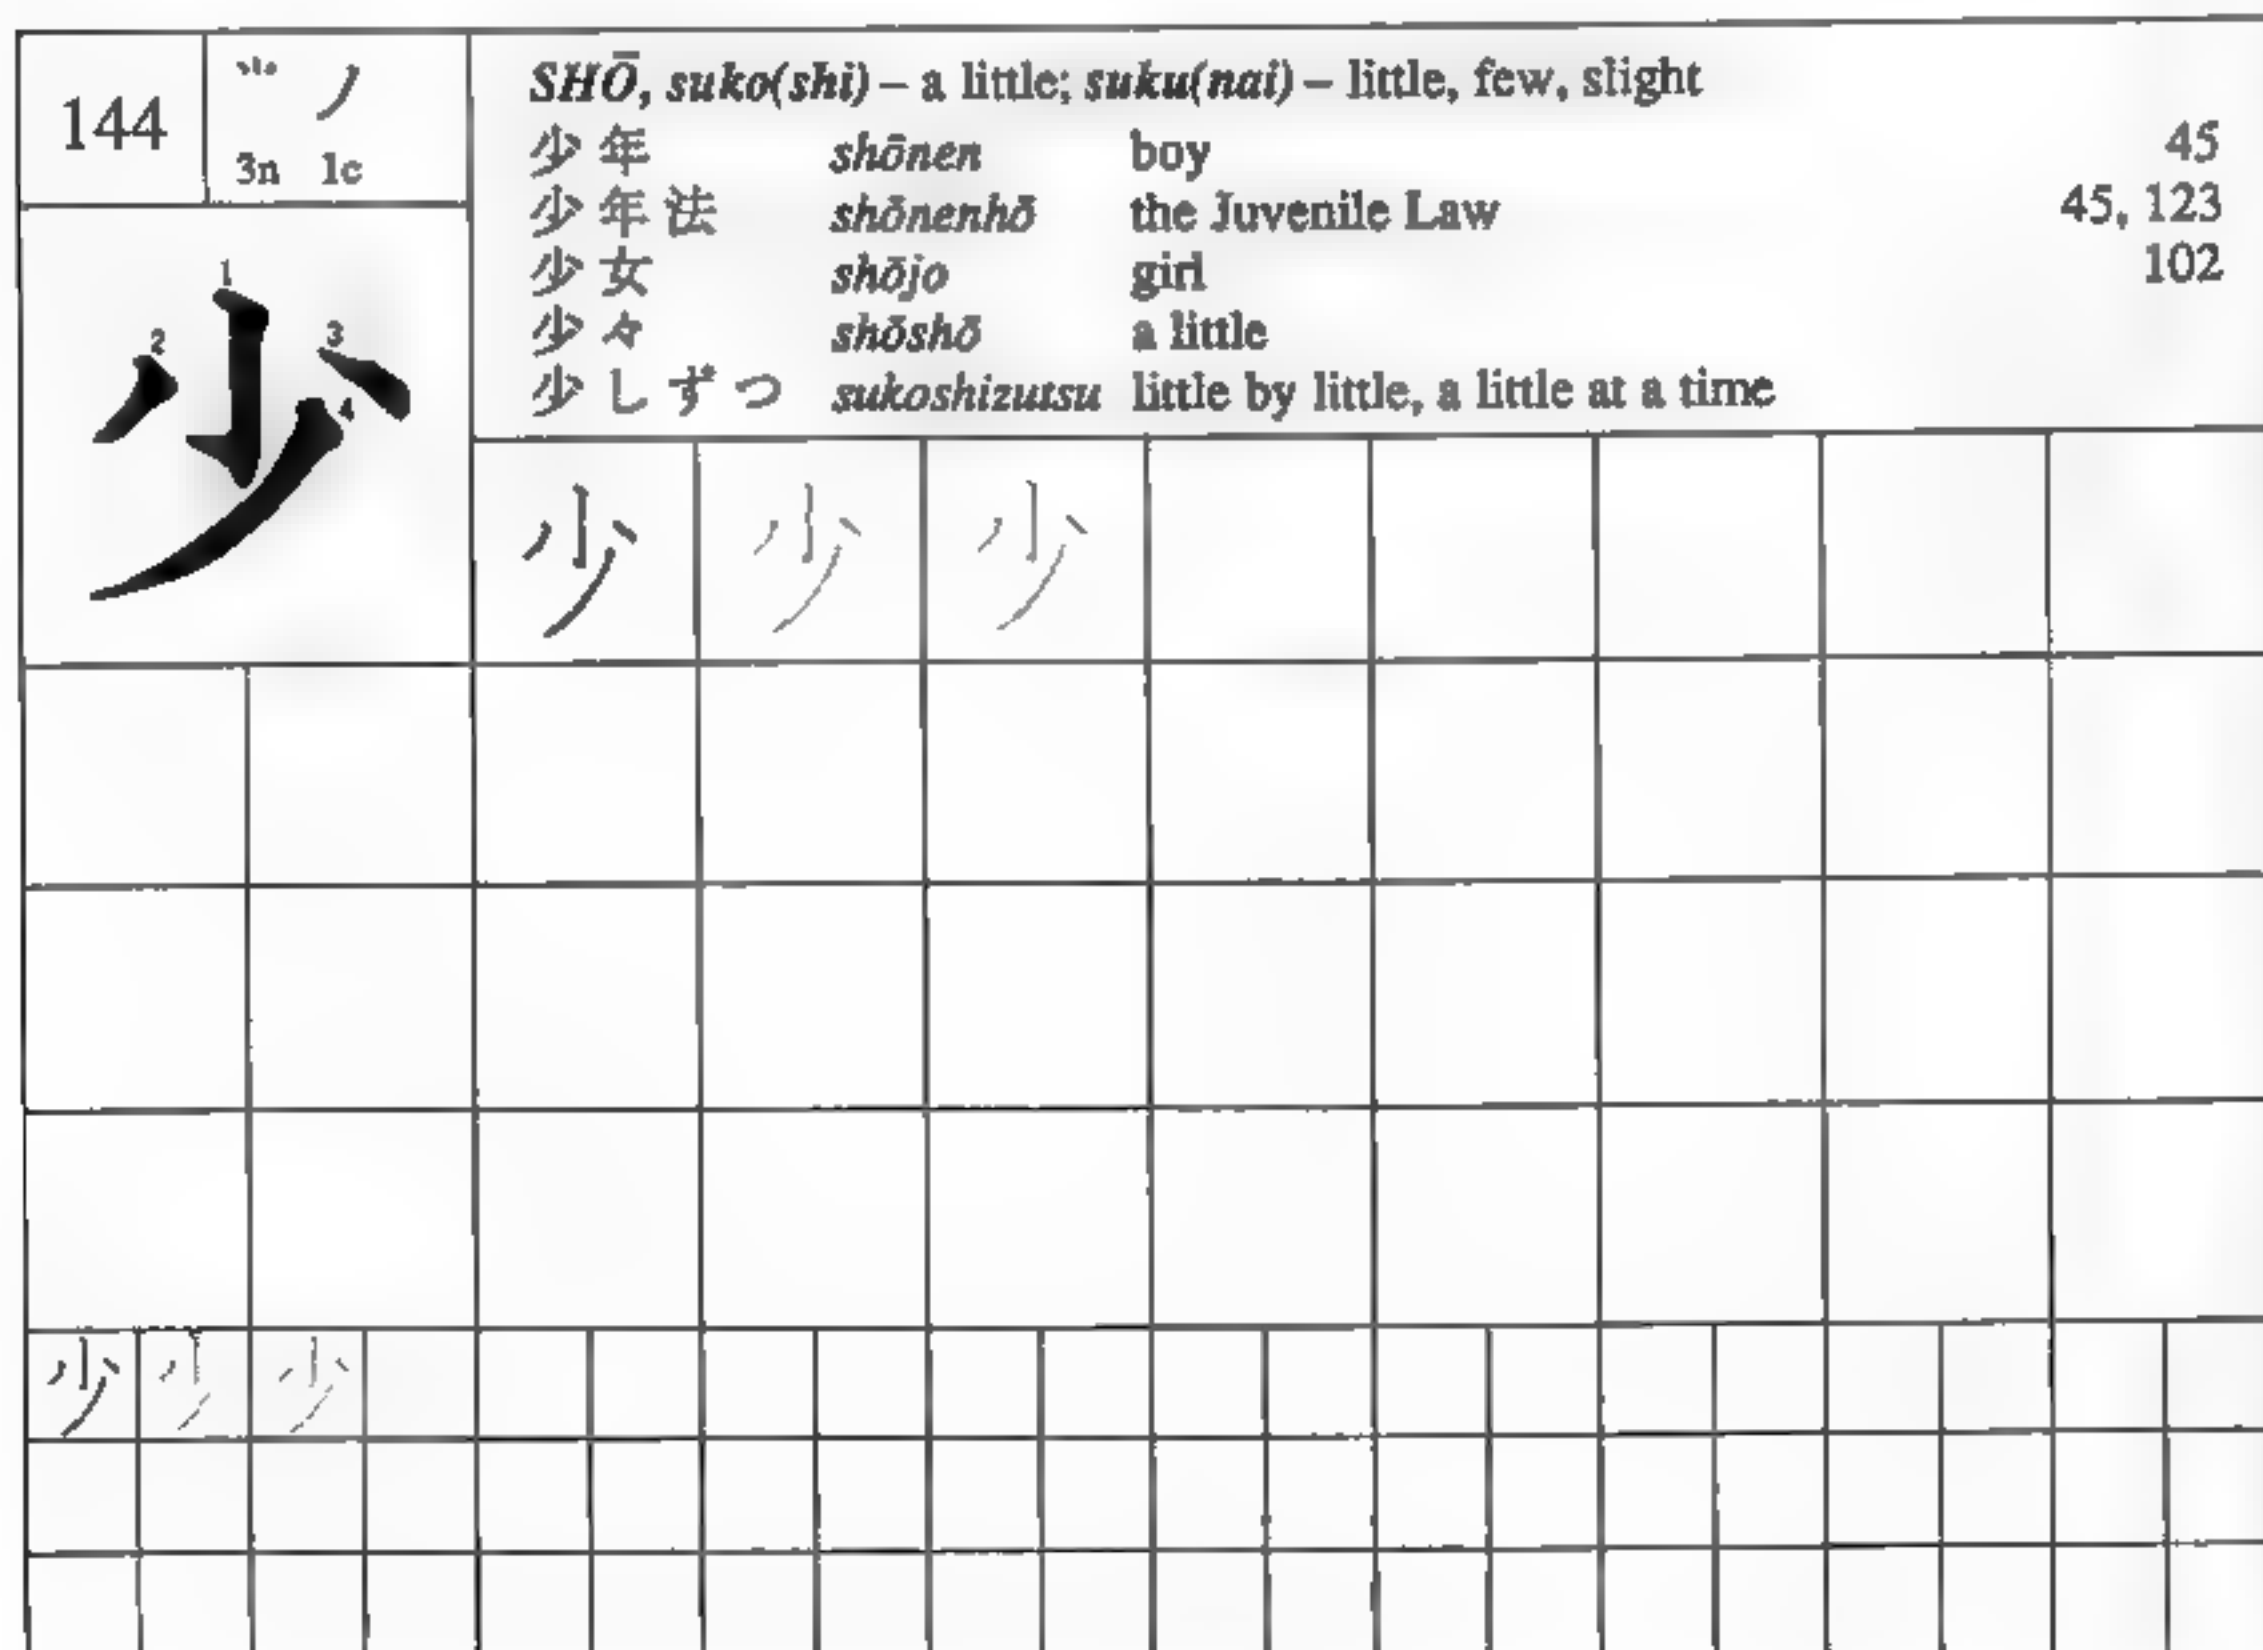 144
3n 1c
SHŌ, suko(shi) – a little; suku(nai) – little, few, slight
少年 shōnen boy 45
少年法 shōnenhō the Juvenile Law 45, 123
少女 shōjo girl 102
少々 shōshō a little
少しずつ sukoshizutsu little by little, a little at a time
1
2 3
4
少
少 少 少
少 少 少